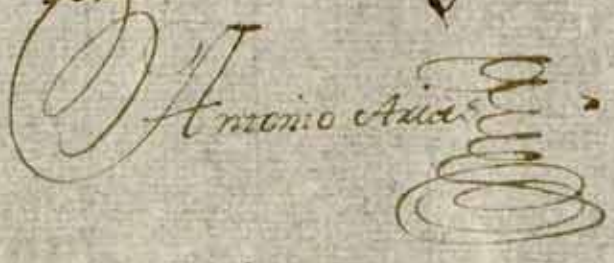 Antonio Arias